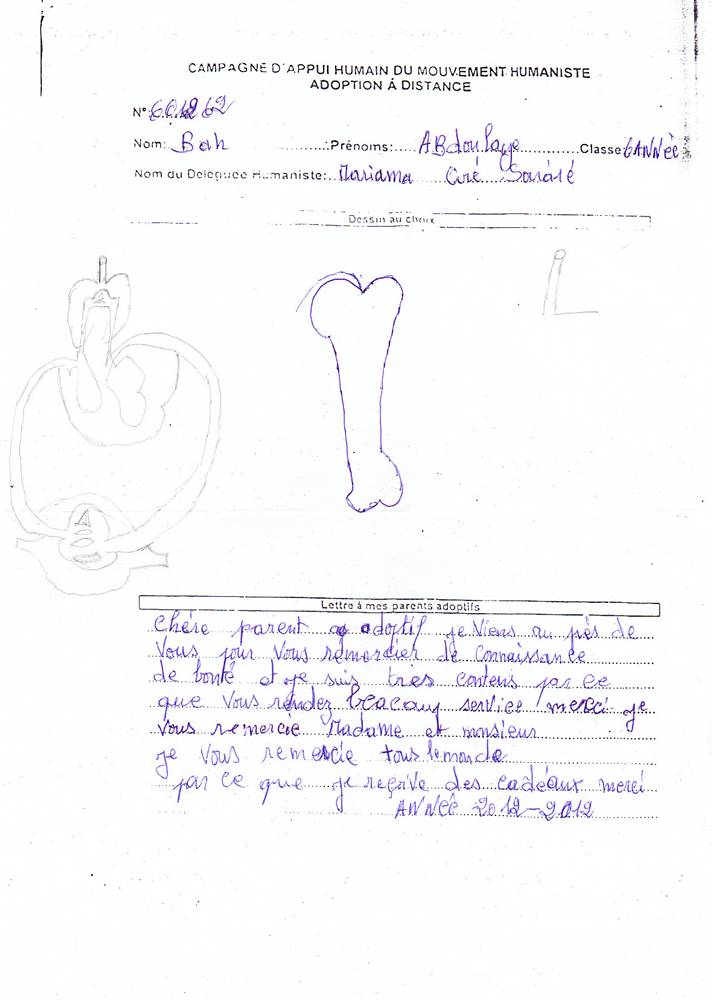 CAMPAGNE D'APPUI HUMAIN DU MOUVEMENT HUMANISTE
ADOPTION Á DISTANCE
N°
Nom: Bah Prénoms: ABdoulaye Classe 6ANNÈÈ
Nom du Déléguée Humaniste: Mariama Ciré
Dessin au choix
Lettre à mes parents adoptifs
Chére parent adoptif je Viens au près de
Vous pour Vous remercier de Connaissance
de bonté et je suis trés contens par ce
que Vous rendez beacoup service merci je
Vous remercie Madame et monsieur
je Vous remercie tous lemonde
par ce que je reçoive des cadéaux merci
ANNÊÊ 2012-2012